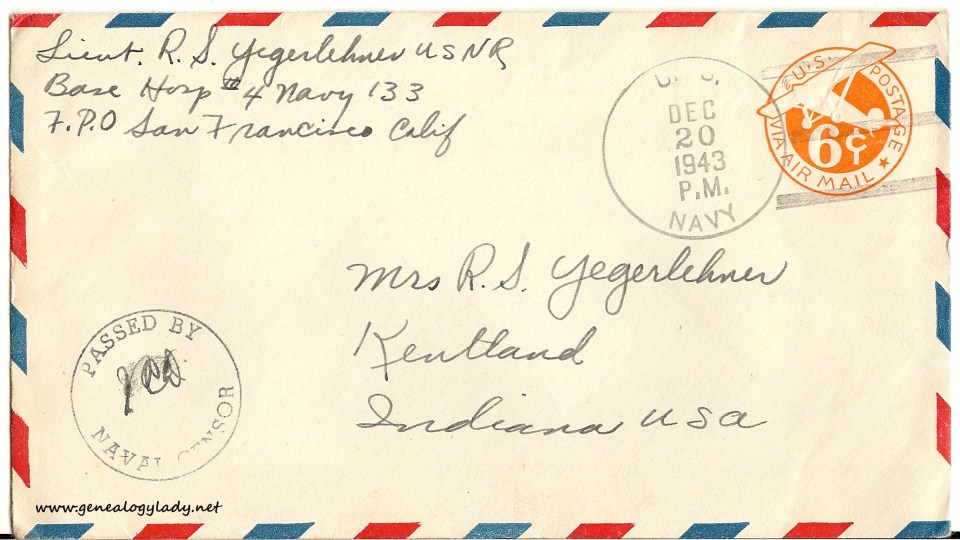 Lieut. R. S. Yegerlehner USNR
Base Hosp #4 Navy 133
F.P.O San Francisco Calif
U.S.
DEC
20
1943
P.M.
NAVY
U.S. POSTAGE
6¢
VIA AIR MAIL
Mrs R. S. Yegerlehner
Kentland
Indiana USA
PASSED BY
NAVAL CENSOR
www.genealogylady.net